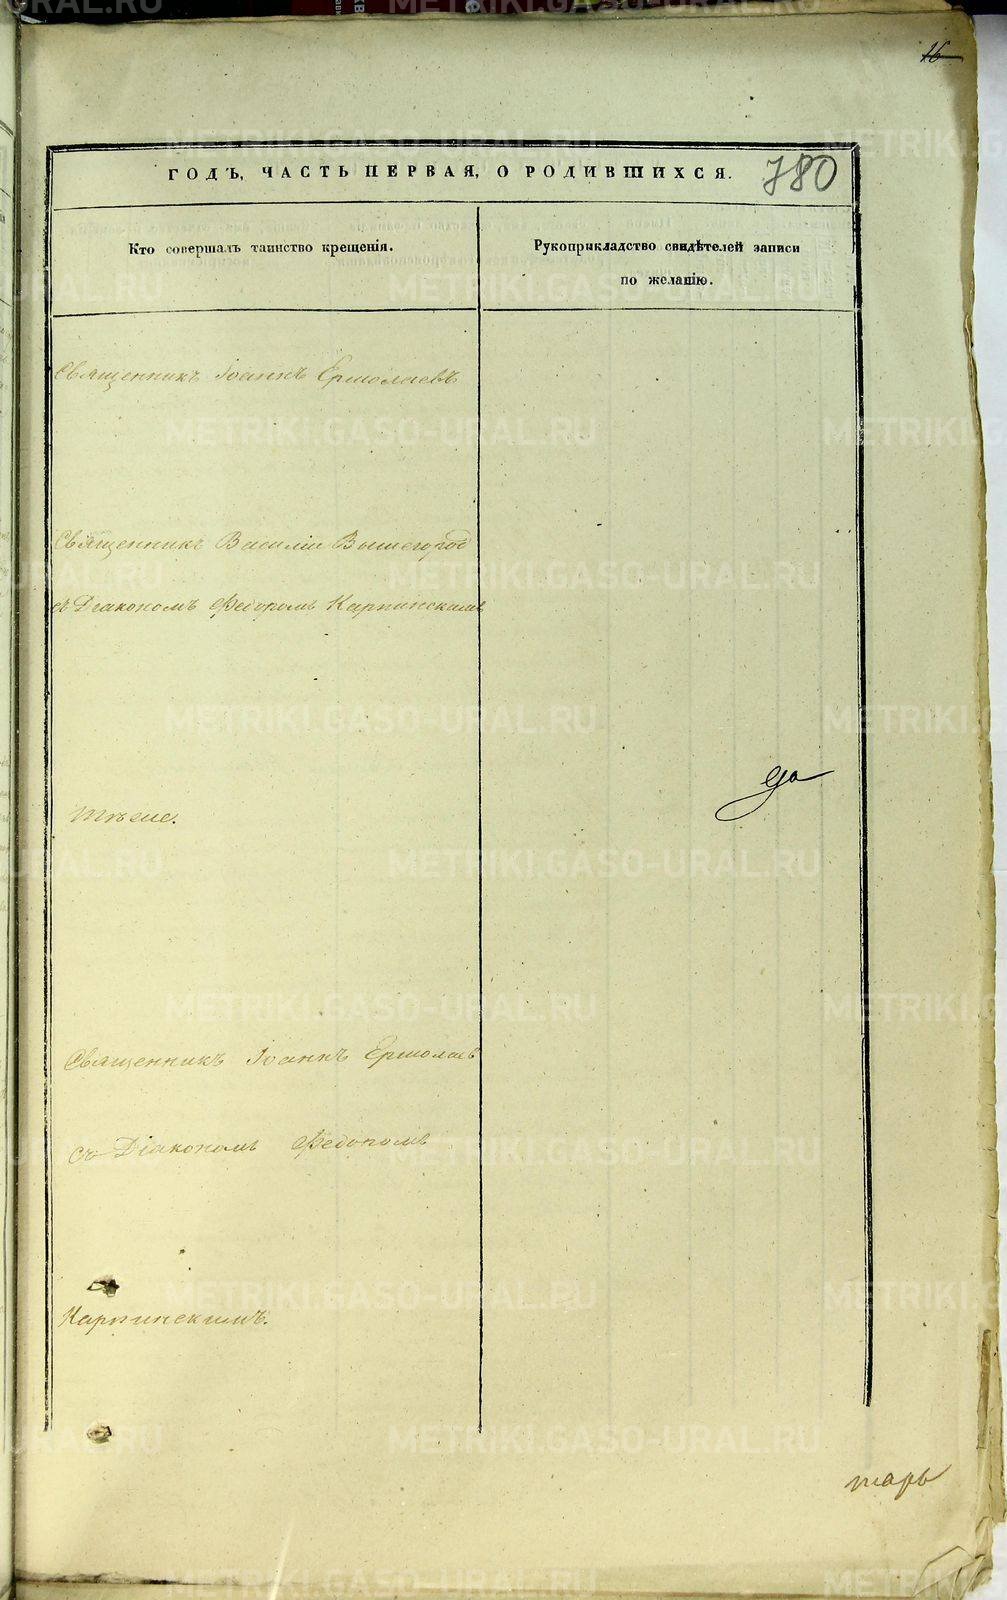 16
ГОДЪ, ЧАСТЬ ПЕРВАЯ, О РОДИВШИХСЯ.
780
Кто совершалъ таинство крещенія.
Рукоприкладство свидѣтелей записи
по желанію.
Священникъ Іоаннъ Ермолаевъ
Священникъ Василіи Вышегород
съ Діакономъ Федоромъ Карпинскимъ
Тѣже.
Священникъ Іоаннъ Ермолаев
съ Діакономъ Федоромъ
Карпинскимъ.
тарь
METRIKI.GASO-URAL.RU